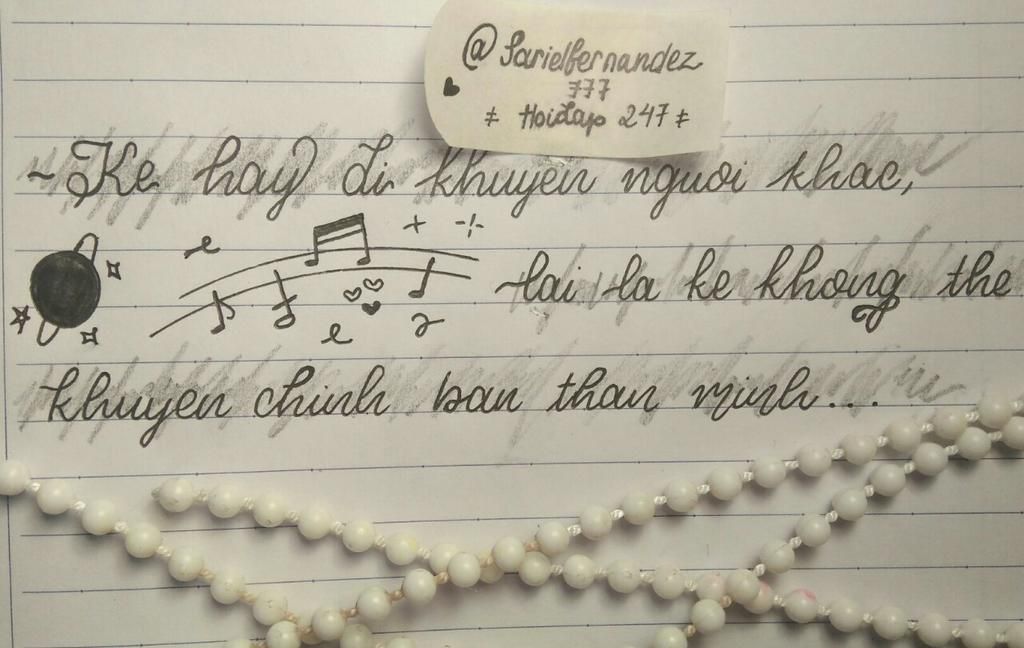 @Sarielfernandez
777
≠ Hoidap 247 ≠
~Ke hay di khuyen nguoi khac,
lai la ke khong the
khuyen chinh ban than minh...